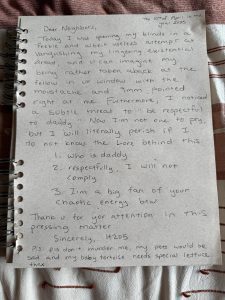 The 22nd of April in the
year 2025
Dear Neighbors,
Today I was opening my blinds in a
feeble and albeit useless attempt at
vanquishing my lingering existential
dread, and u can imagine my
being rather taken aback by the
fellow in ur window with the
moustache and 9mm pointed
right at me. Furthermore, I noticed
a subtle threat to "be respectful
to daddy." Now I'm not one to pry,
but I will literally perish if I
do not know the lore behind this.
1. who is daddy
2. respectfully, I will not
comply
3. I'm a big fan of your
chaotic energy btw
Thank u for your attention in this
pressing matter.
Sincerely, #205
P.S. pls don't murder me, my pets would be
sad and my baby tortoise needs special lettuce
thnx